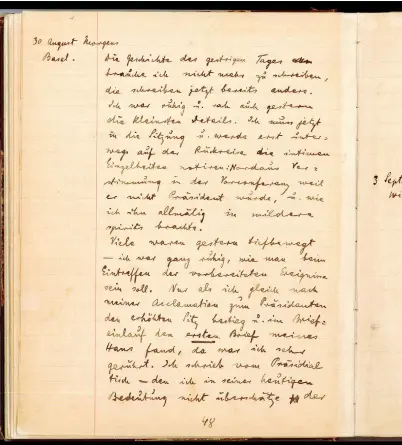 30 August Morgens
Basel.
Die Geschichte des gestrigen Tages
brauche ich nicht mehr zu schreiben,
die schreiben jetzt bereits andere.
Ich war ruhig u. sah auch gestern
die kleinsten Details. Ich muss jetzt
in die Sitzung u. werde erst unter=
wegs auf der Rückreise die intimen
Einzelheiten notiren: Nordaus Ver=
stimmung in der Vorconferenz weil
er nicht Präsident würde, u. wie
ich ihn allmälig in mildere
spirits brachte.
Viele waren gestern tiefbewegt
– ich war ganz ruhig, wie man beim
Eintreffen der vorbereiteten Ereignisse
sein soll. Nur als ich gleich nach
meiner Acclamation zum Präsidenten
den erhöhten Sitz bestieg u. im Brief=
einlauf den ersten Brief meines
Hans fand, da war ich sehr
gerührt. Ich schrieb vom Präsidial
tisch – den ich in seiner heutigen
Bedeutung nicht überschätze der
48
3 Sept